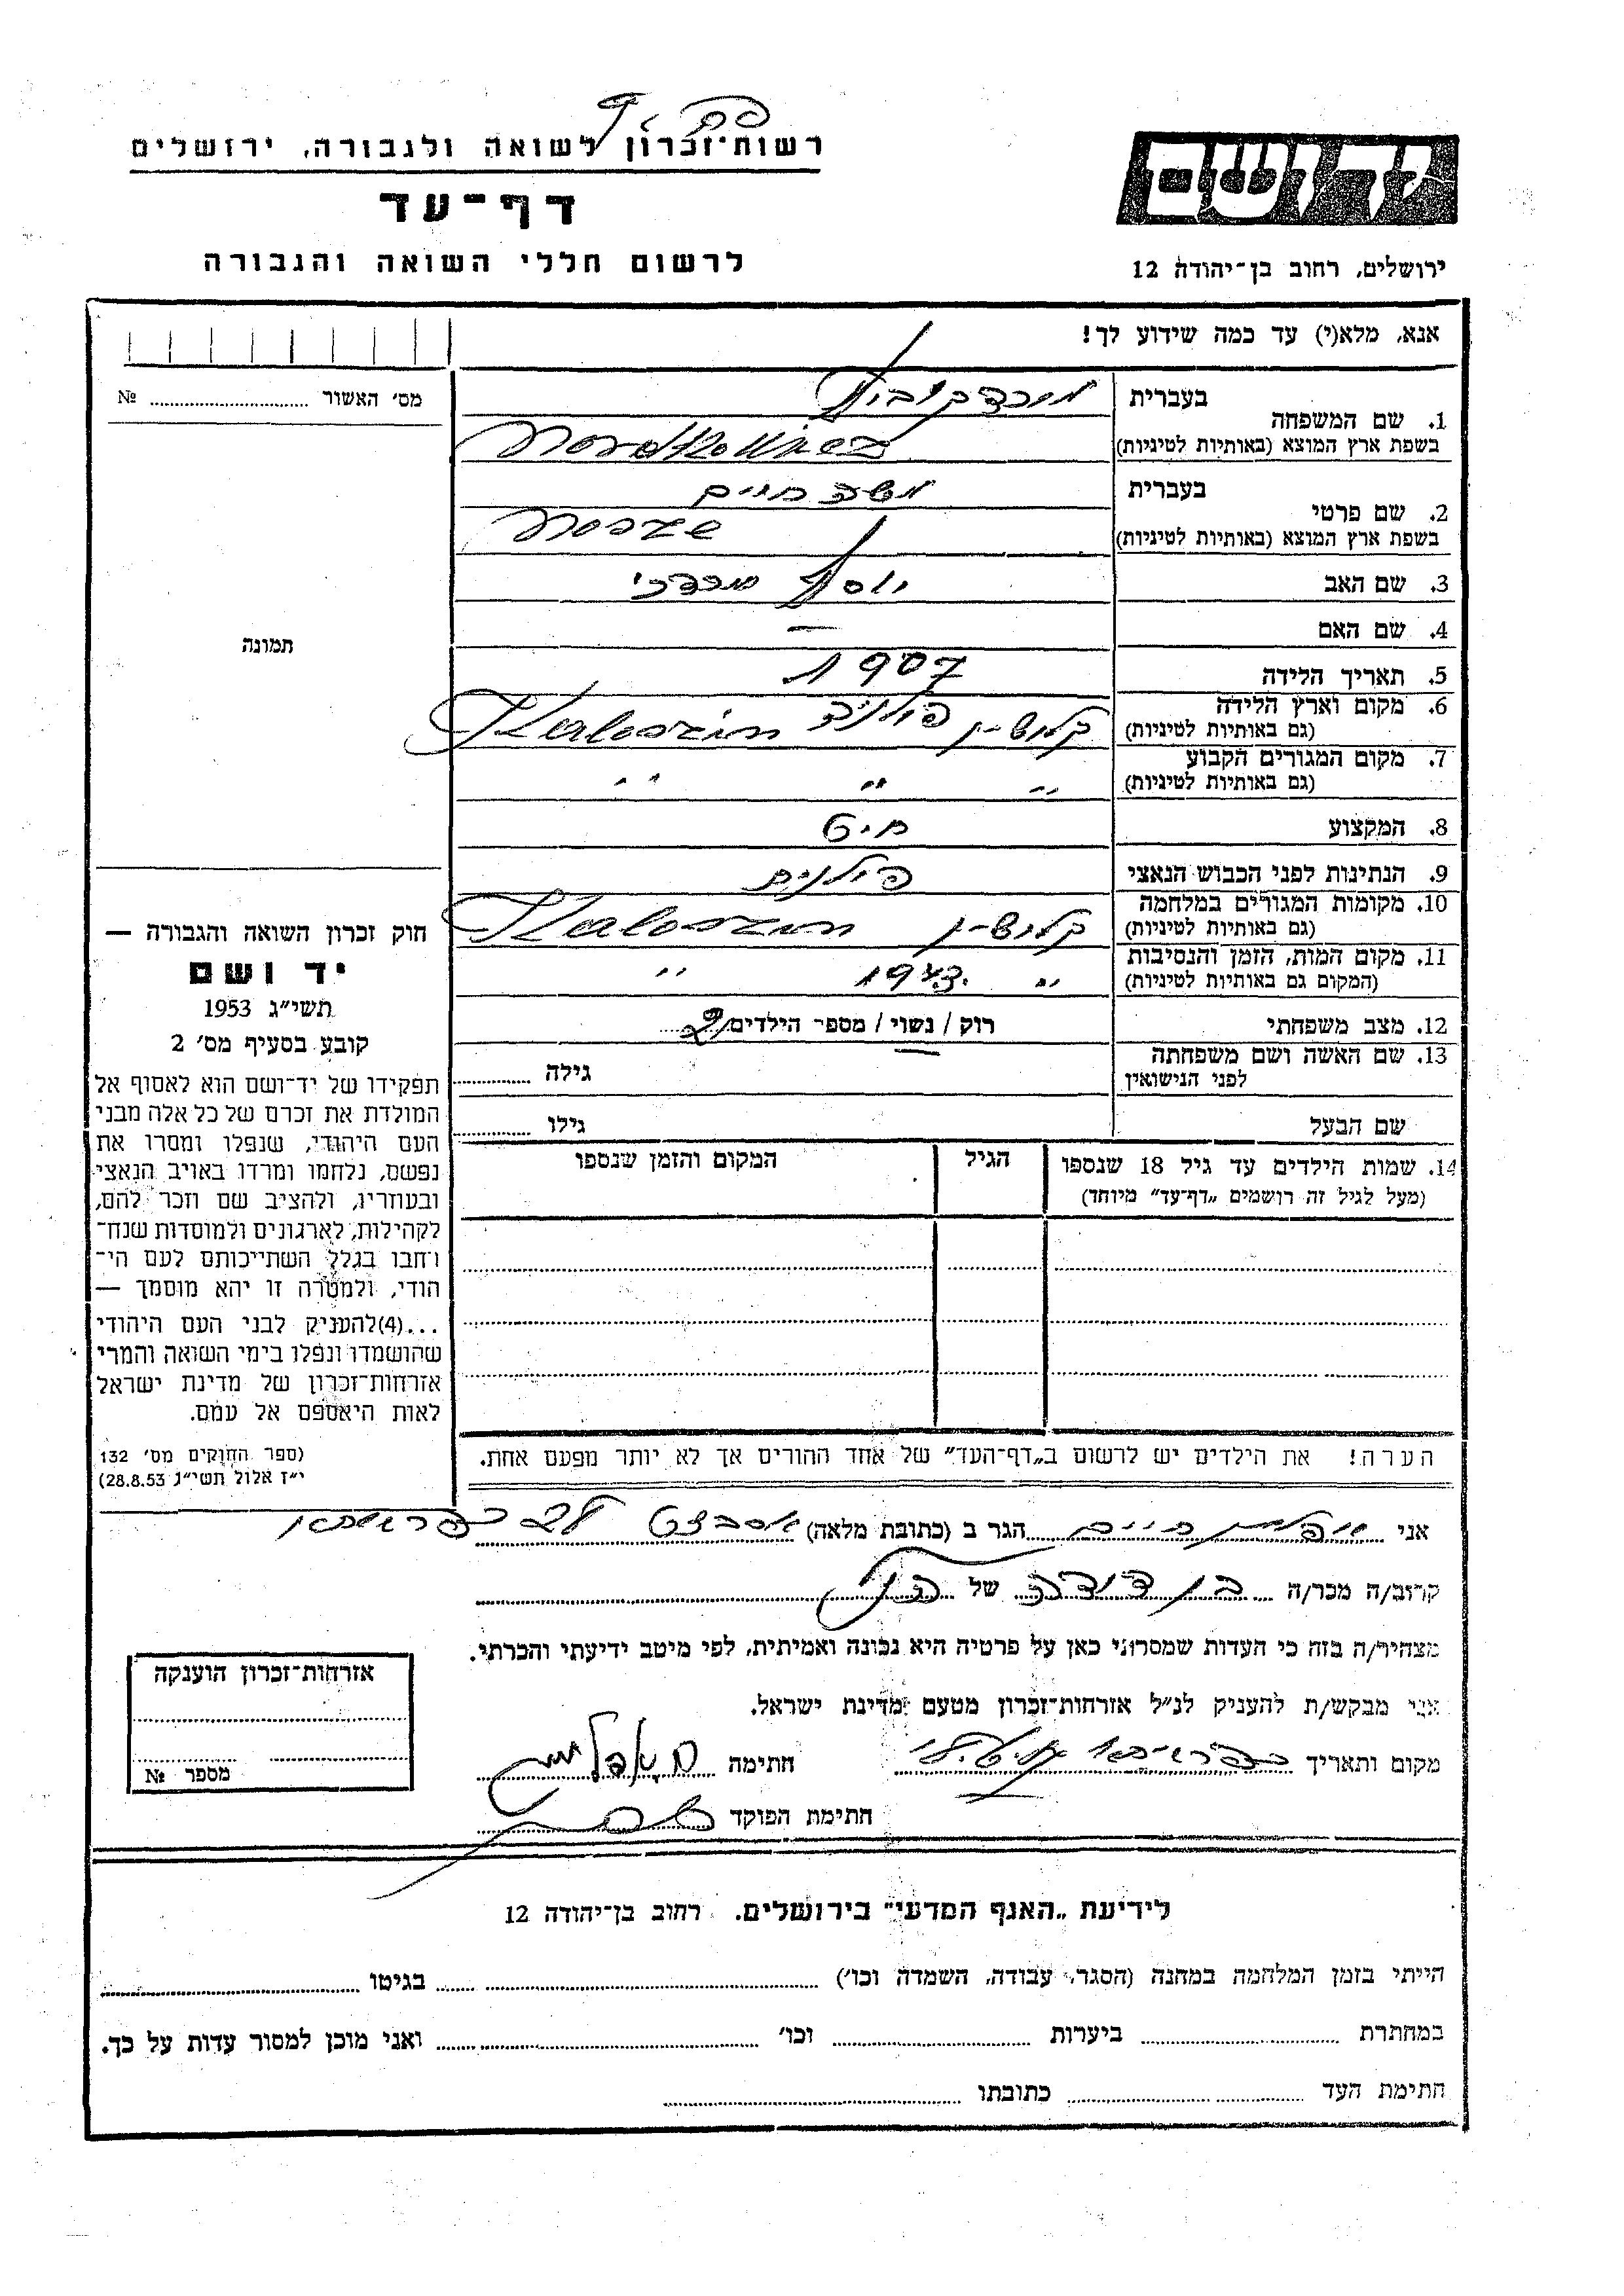 רשות־זכרון לשואה ולגבורה, ירושלים
דף־עד
לרשום חללי השואה והגבורה
יד ושם
ירושלים, רחוב בן־יהודה 12
אנא, מלא(י) עד כמה שידוע לך!
מס׳ האשור № 
תמונה
1. שם המשפחה בעברית מורדקוביץ
בשפת ארץ המוצא (באותיות לטיניות) Mordkowicz
2. שם פרטי בעברית משה חיים
בשפת ארץ המוצא (באותיות לטיניות) Mosze
3. שם האב יוסף מרדכי
4. שם האם —
5. תאריך הלידה 1907
6. מקום וארץ הלידה (גם באותיות לטיניות) קלושין פולניה Kaloszin
7. מקום המגורים הקבוע (גם באותיות לטיניות) ״ ״ ״
8. המקצוע חיט
9. הנתינות לפני הכבוש הנאצי פולנית
10. מקומות המגורים במלחמה (גם באותיות לטיניות) קלושין Kaloszin
11. מקום המות, הזמן והנסיבות (המקום גם באותיות לטיניות) ״ 1943. ״
12. מצב משפחתי רוק / נשוי / מספר הילדים 2
13. שם האשה ושם משפחתה לפני הנישואין גילה
שם הבעל גילו
14. שמות הילדים עד גיל 18 שנספו (מעל לגיל זה רושמים „דף־עד״ מיוחד) הגיל המקום והזמן שנספו
חוק זכרון השואה והגבורה —
יד ושם
תשי״ג 1953
קובע בסעיף מס׳ 2
תפקידו של יד־ושם הוא לאסוף אל
המולדת את זכרם של כל אלה מבני
העם היהודי, שנפלו ומסרו את
נפשם, נלחמו ומרדו באויב הנאצי
ובעוזריו, ולהציב שם וזכר להם,
לקהילות, לארגונים ולמוסדות שנח־
רחבו בגלל השתייכותם לעם הי־
הודי, ולמטרה זו יהא מוסמך —
...(4)להעניק לבני העם היהודי
שהושמדו ונפלו בימי השואה והמרי
אזרחות־זכרון של מדינת ישראל
לאות היאספם אל עמם.
(ספר החוקים מס׳ 132
י״ז אלול תשי״ג 28.8.53)
הערה! את הילדים יש לרשום ב„דף־העד״ של אחד ההורים אך לא יותר מפעם אחת.
אני חיים הגר ב (כתובת מלאה)
קרוב/ה מכר/ה בן דודה של הנ״ל
מצהיר/ה בזה כי העדות שמסרתי כאן על פרטיה היא נכונה ואמיתית, לפי מיטב ידיעתי והכרתי.
אני מבקש/ת להעניק לנ״ל אזרחות־זכרון מטעם מדינת ישראל.
מקום ותאריך חתימה
חתימת הפוקד
אזרחות־זכרון הוענקה
מספר №
לידיעת „האגף המדעי״ בירושלים. רחוב בן־יהודה 12
הייתי בזמן המלחמה במחנה (הסגר, עבודה, השמדה וכו׳) בגיטו
במחתרת ביערות וכו׳ ואני מוכן למסור עדות על כך.
חתימת העד כתובתו